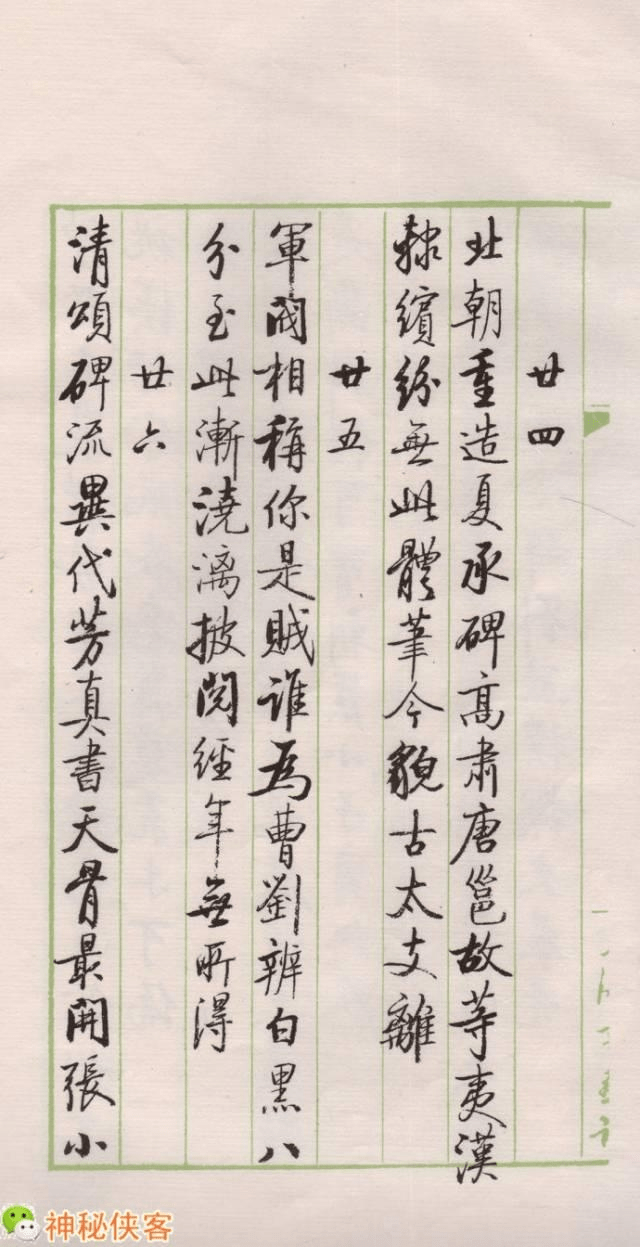 廿四
北朝重造夏承碑高肅唐邕故等夷漢
隸繽紛無此體笔今貌古太支離
廿五
軍閥相稱你是賊誰為曹劉辨白黑八
分至此漸澆漓披閱經年無所得
廿六
清頌碑流異代芳真書天骨最開張小
神秘侠客